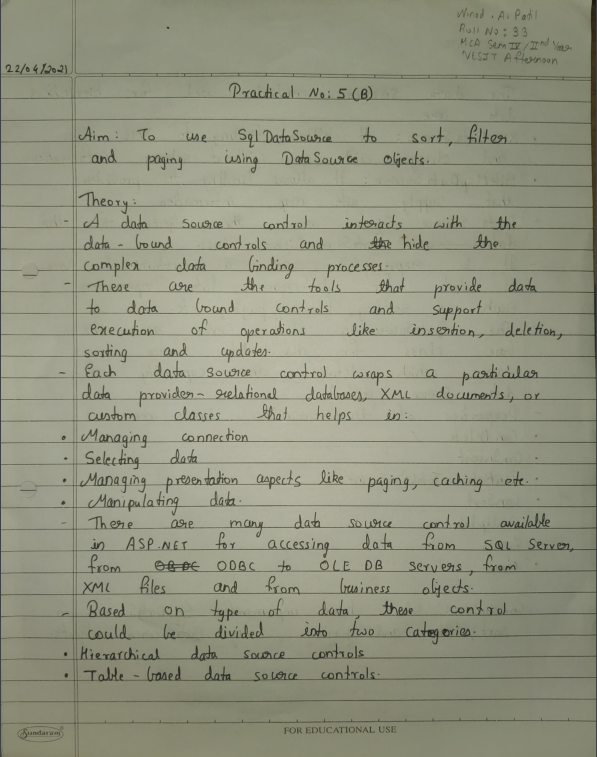 Vinod. A. Patil
Roll No: 33
MCA Sem IV / IInd Year
VESIT Afternoon
22/04/2021
Practical No: 5 (B)
Aim: To use SqlDataSource to sort, filter
and paging using DataSource objects.
Theory:
- A data source control interacts with the
data-bound controls and the hide the
complex data binding processes.
- These are the tools that provide data
to data bound controls and support
execution of operations like insertion, deletion,
sorting and updates.
- Each data source control wraps a particular
data provider- relational databases, XML documents, or
custom classes that helps in:
• Managing connection
• Selecting data
• Managing presentation aspects like paging, caching etc.
• Manipulating data.
- There are many data source control available
in ASP.NET for accessing data from SQL Server,
from ODBC to OLE DB servers, from
XML files and from business objects.
- Based on type of data, these control
could be divided into two categories.
• Hierarchical data source controls
• Table-based data source controls.
Sundaram
FOR EDUCATIONAL USE